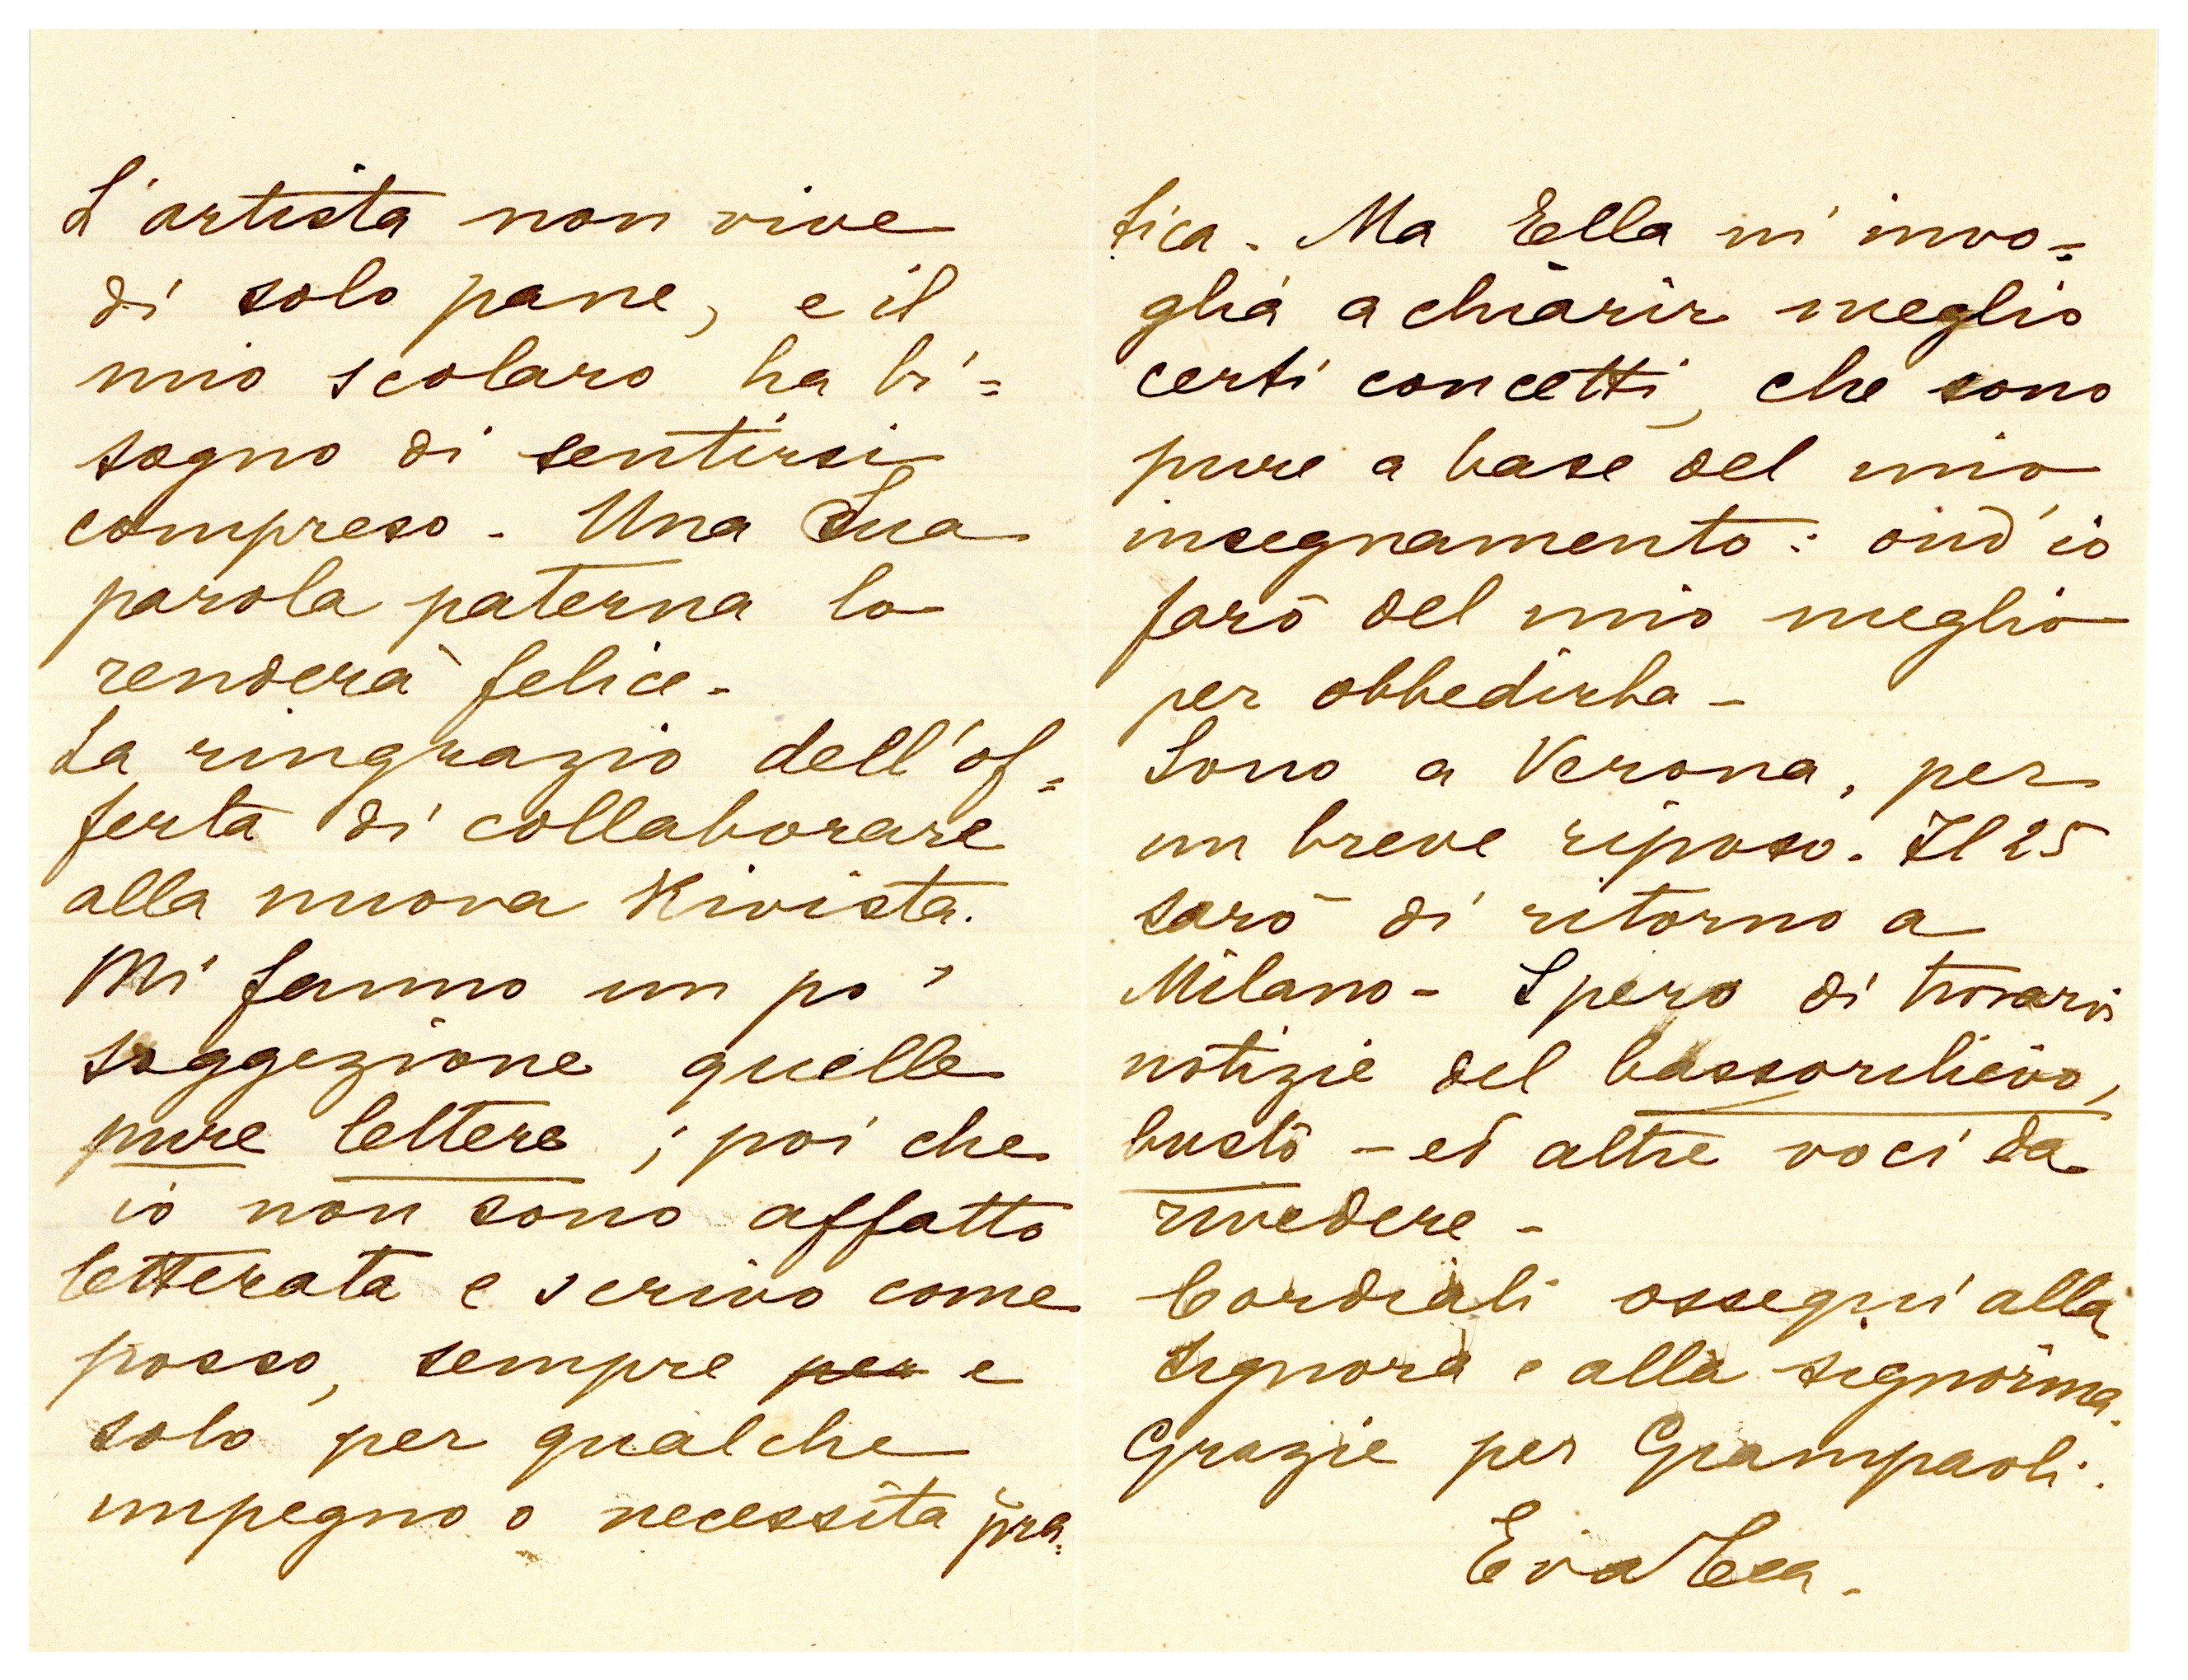 L'artista non vive
di solo pane, e il
mio scolaro ha bi=
sogno di sentirsi
compreso - Una Sua
parola paterna lo
renderà felice -
La ringrazio dell'of=
ferta di collaborare
alla nuova Rivista.
Mi fanno un po'
soggezione quelle
pure lettere ; poi che
io non sono affatto
letterata e scrivo come
posso, sempre per e
solo per qualche
impegno o necessità pra=
tica - Ma Ella m'invo=
glia a chiarir meglio
certi concetti, che sono
pure a base del mio
insegnamento : ond'io
farò del mio meglio
per obbedirla -
Sono a Verona, per
un breve riposo. Il 25
sarò di ritorno a
Milano - Spero di trovarvi
notizie del bassorilievo,
busto - ed altre voci da
rivedere -
Cordiali ossequi alla
Signora e alla signorina.
Grazie per Giampaoli.
Eva Tea -